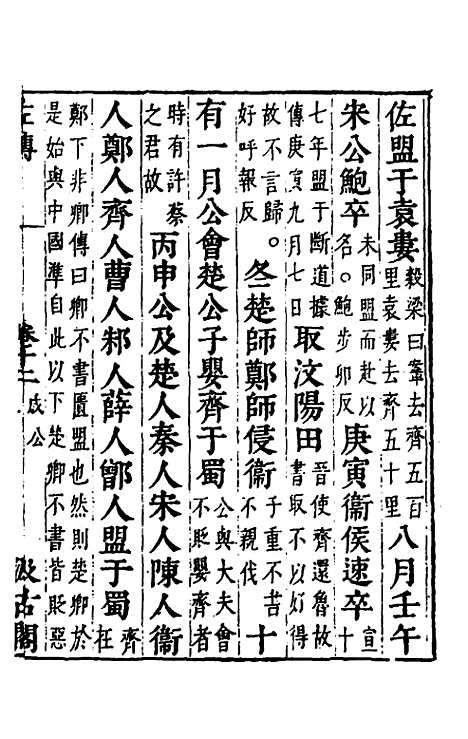 佐盟于袁婁穀梁曰鞌去齊五百里袁婁去齊五十里八月壬午
宋公鮑卒未同盟而赴以名。鮑步卯反庚寅衞侯速卒宣十
七年盟于斷道據傳庚寅九月七日取汶陽田晉使齊還魯故書取不以好得
故不言歸。好呼報反冬楚師鄭師侵衞子重不書不親伐十
有一月公會楚公子嬰齊于蜀公與大夫會不貶嬰齊者
時有許蔡之君故丙申公及楚人秦人宋人陳人衞
人鄭人齊人曹人邾人薛人鄫人盟于蜀齊在
鄭下非卿傳曰卿不書匱盟也然則楚卿於是始與中國準自此以下楚卿不書皆貶惡
左傳 卷十二 成公 汲古閣